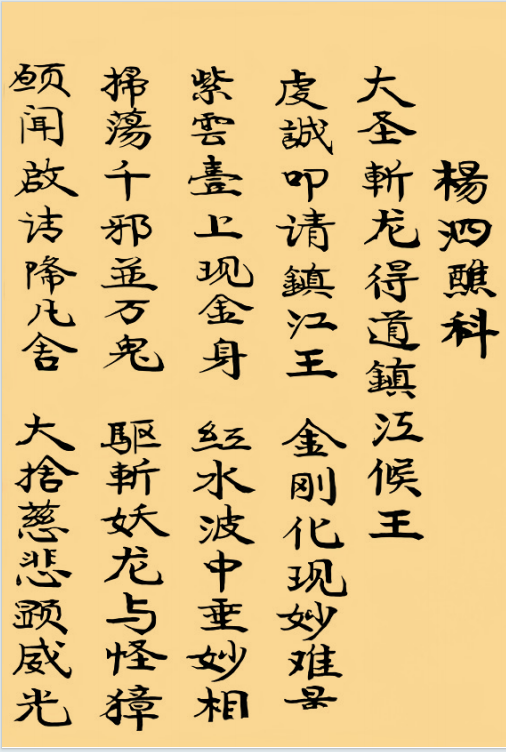 楊泗醮科
大圣斬龙得道鎮江候王
虔誠叩请鎮江王 金刚化现妙难量
紫雲臺上现金身 红水波中垂妙相
掃蕩千邪並万鬼 驅斬妖龙与怪獐
頋闻啟请降凡舍 大捨慈悲顕威光